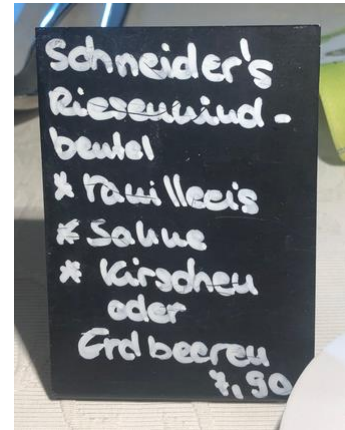 Schneider's
Riesenwind-
beutel
* Vanilleeis
* Sahne
* Kirschen
oder
Erdbeeren
7,90